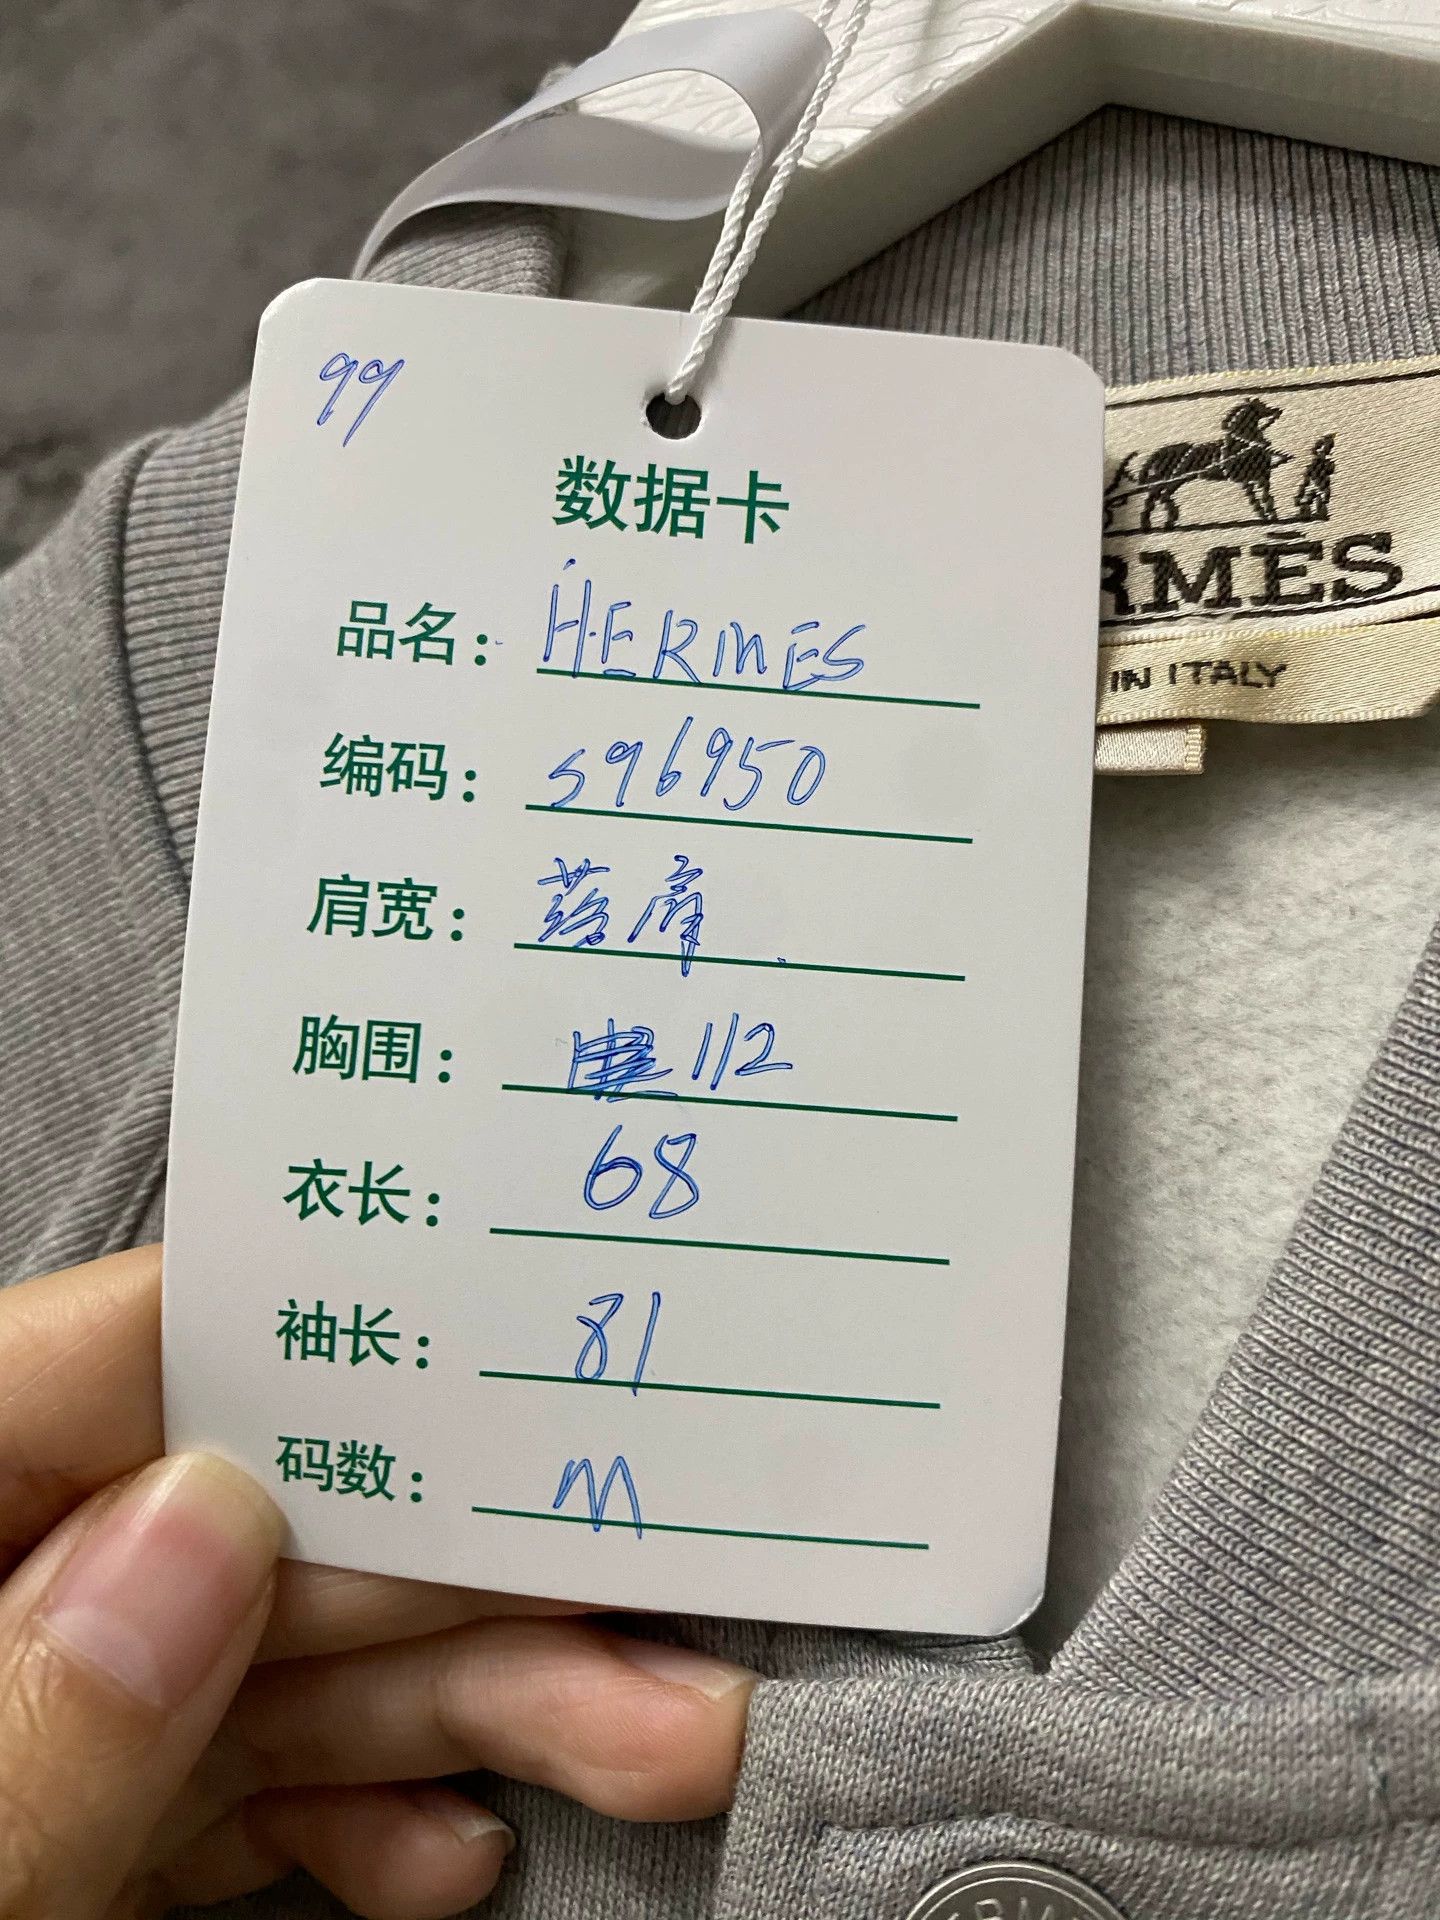 99
数据卡
品名: HERMES
编码: S96950
肩宽: 落肩
胸围: 112
衣长: 68
袖长: 81
码数: M
RMÈS
IN ITALY